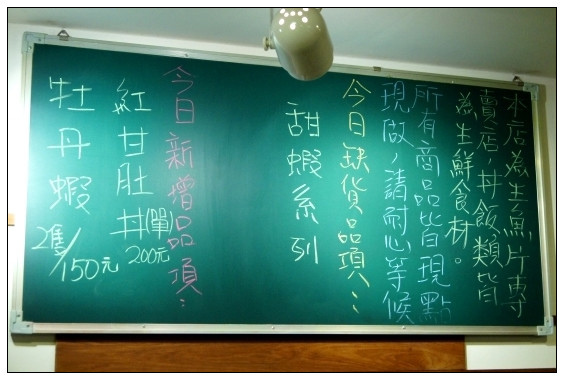 本店為生魚片專
賣店，丼飯類皆
為生鮮食材。
所有商品皆現點
現做，請耐心等候
今日缺貨品項：
甜蝦系列
今日新增品項：
紅甘肚丼(單)
200元
牡丹蝦
2隻/150元